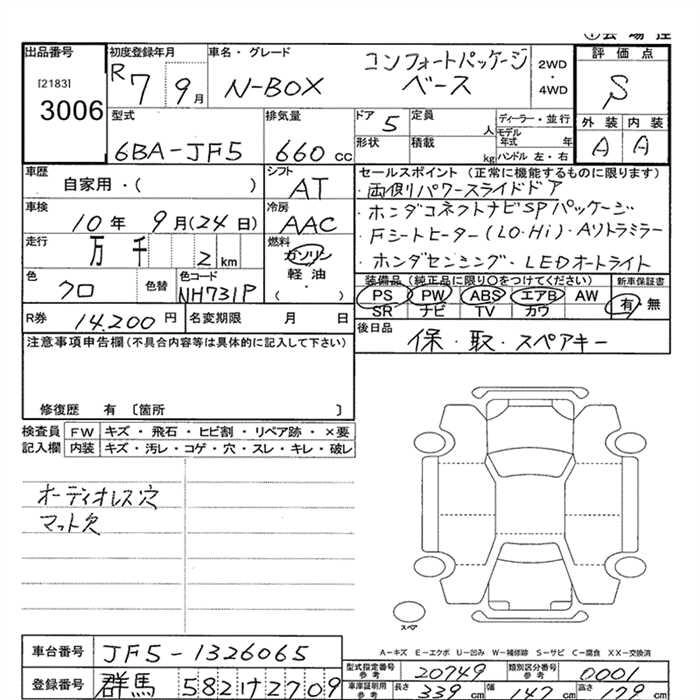 出品番号 初度登録年月 車名・グレード 評価点
[2183] R7 9月 N-BOX コンフォートパッケージ 2WD
3006 ベース ・ S
4WD
型式 排気量 ドア 5 定員 人 ディーラー・並行 外装 内装
6BA-JF5 660cc 形状 積載 kg モデル年式 年 A A
ハンドル 左・右
車歴 自家用・( ) シフト AT セールスポイント (正常に機能するものに限ります)
・両側パワースライドドア
車検 10年 9月(24日) 冷房 AAC ・ホンダコネクトナビSPパッケージ
走行 万 千 2 km 燃料 ガソリン ・Fシートヒーター(LO・Hi)・Aソトラミラー
軽油 ・ホンダセンシング・LEDオートライト
色 クロ 色替 色コード NH731P ( ) 装備品 (純正品に限り○をつけてください) 新車保証書
PS PW ABS エアB AW 有・無
SR ナビ TV カワ
R券 14,200円 名変期限 月 日 後日品 保・取・スペアキー
注意事項申告欄(不具合内容等は具体的に記入して下さい)
修復歴 有 〔箇所 〕
検査員 FW キズ・飛石・ヒビ割・リペア跡・×要
記入欄 内装 キズ・汚レ・コゲ・穴・スレ・キレ・破レ
オーディオレス穴
マット欠
スペア
A-キズ E-エクボ U-凹み W-補修跡 S-サビ C-腐食 XX-交換済
車台番号 JF5-1326065
型式指定番号 参考 20749 類別区分番号 参考 0001
登録番号 群馬 582 け 2709
車庫証明用 参考 長さ 339cm 幅 147cm 高さ 179cm